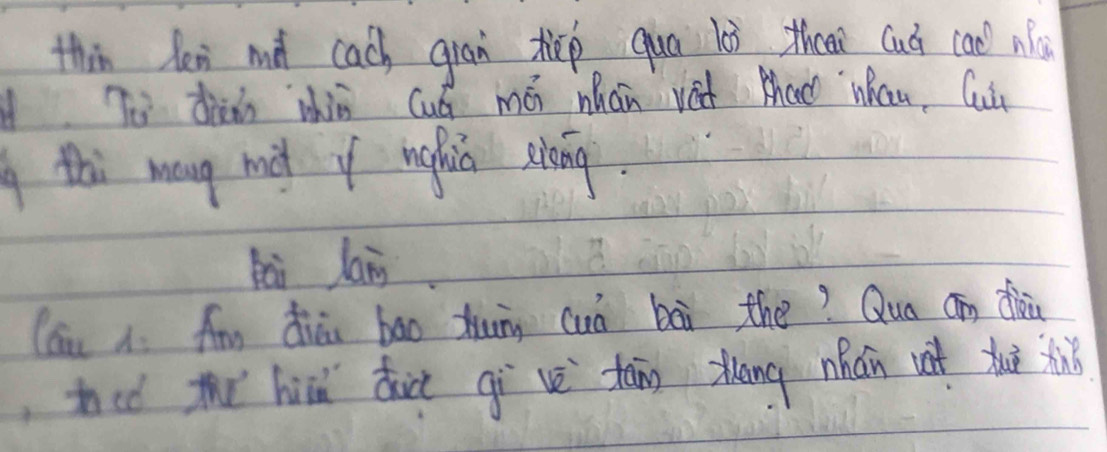 thìn lên một cách gián tiếp qua lời thoại của các nhân
Từ điểm nhìn của mỗi nhân vật khác nhau. Cuối
thì mang một ý nghĩa riêng.
Bài làm.
Câu 1. Âm điệu bao trùm của bài thơ? Qua âm điệu
thơ thể hiện được gì về tâm trạng nhân vật trữ tình.